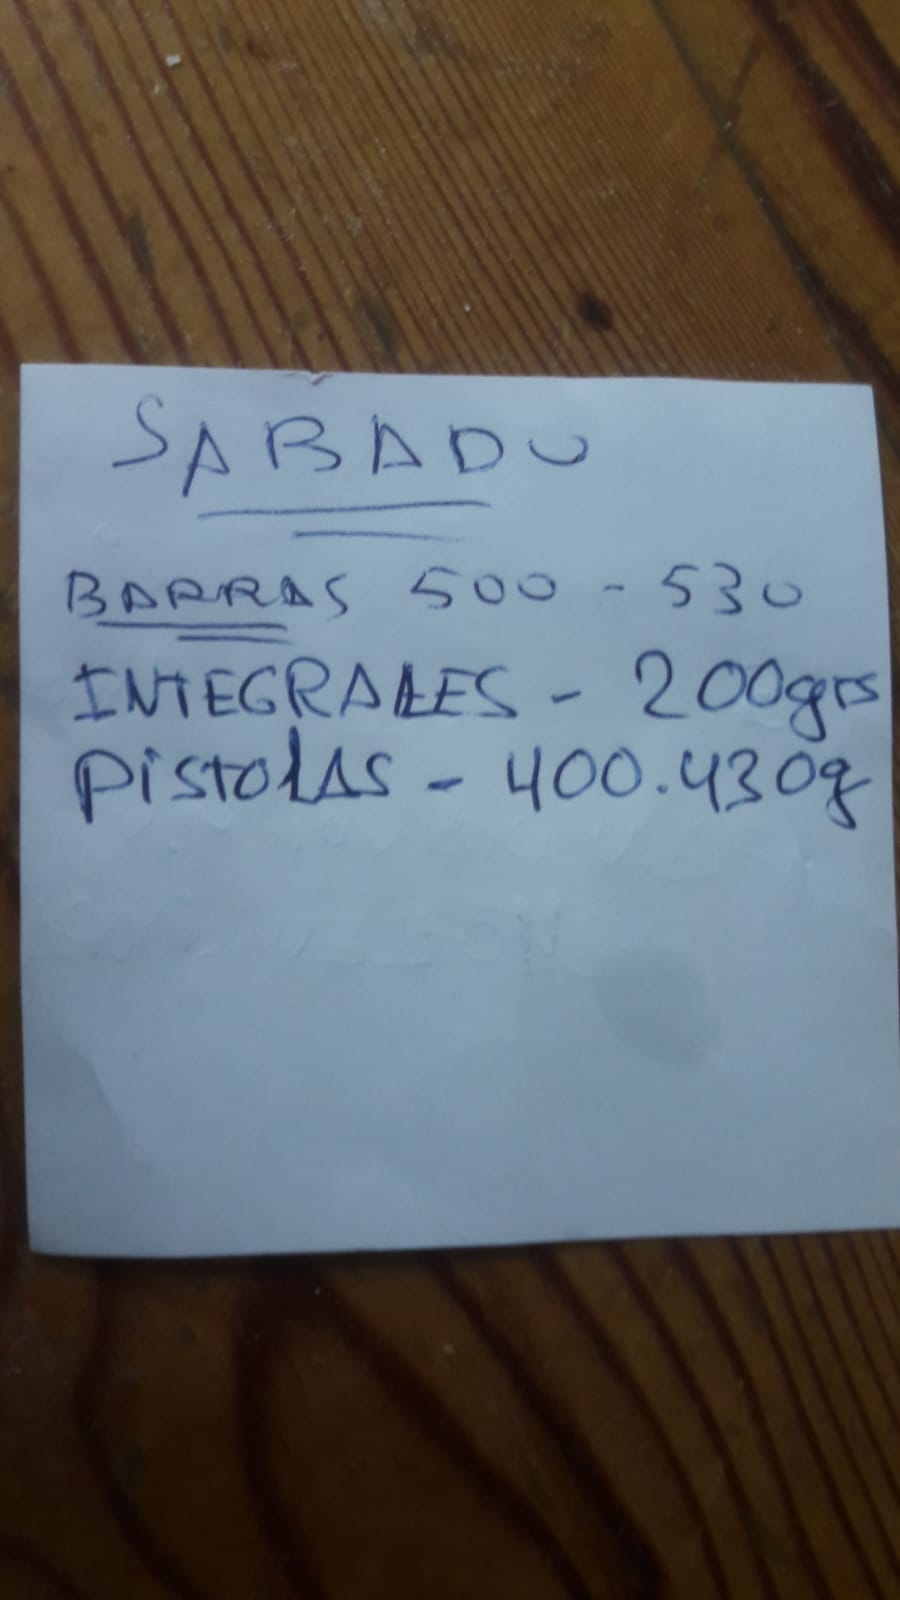 SABADO
BARRAS 500 - 530
INTEGRALES - 200grs
PistolAS - 400.430g